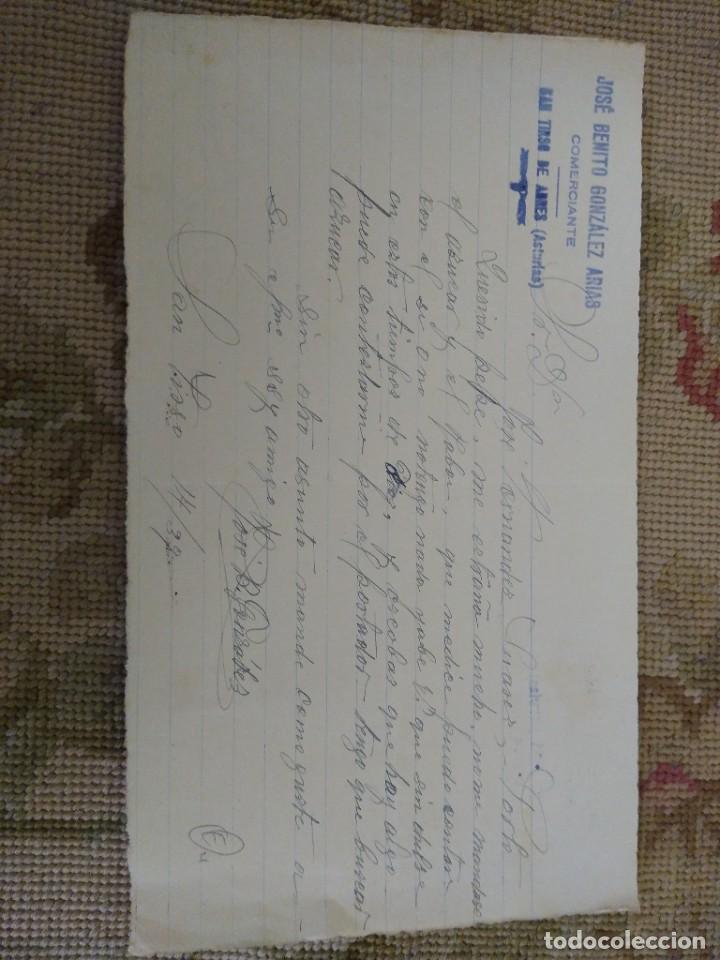 JOSÉ BENITO GONZÁLEZ ARIAS
COMERCIANTE
SAN TIRSO DE ABRES (Asturias)
Sr. Dn
José Fernandez Porto
Querido pepe, me estraña mucho, nome mandase
el asucar y el jabon, que medice puede contar
con el si ono notengo nada sabe V. que sin dulse
en estos tiempos de, y escobas que hay algo
puede contestarme por el portador tengo que buscar
asucar.
Sin otro asunto mande como guste a
su afmo. ss y amigo
José B. González
San Tirso 14/
todocoleccion.net